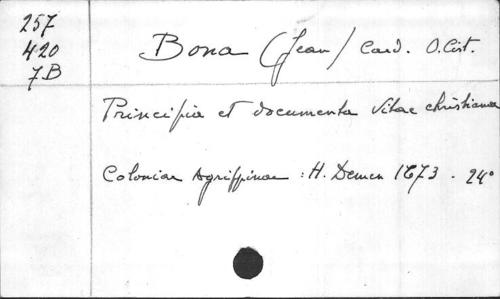 257
420
7B
Bona (Jean) Card. O.Cist.
Principia et documenta vitae christianae
Coloniae Agrippinae : H. Demen 1673 . 24°